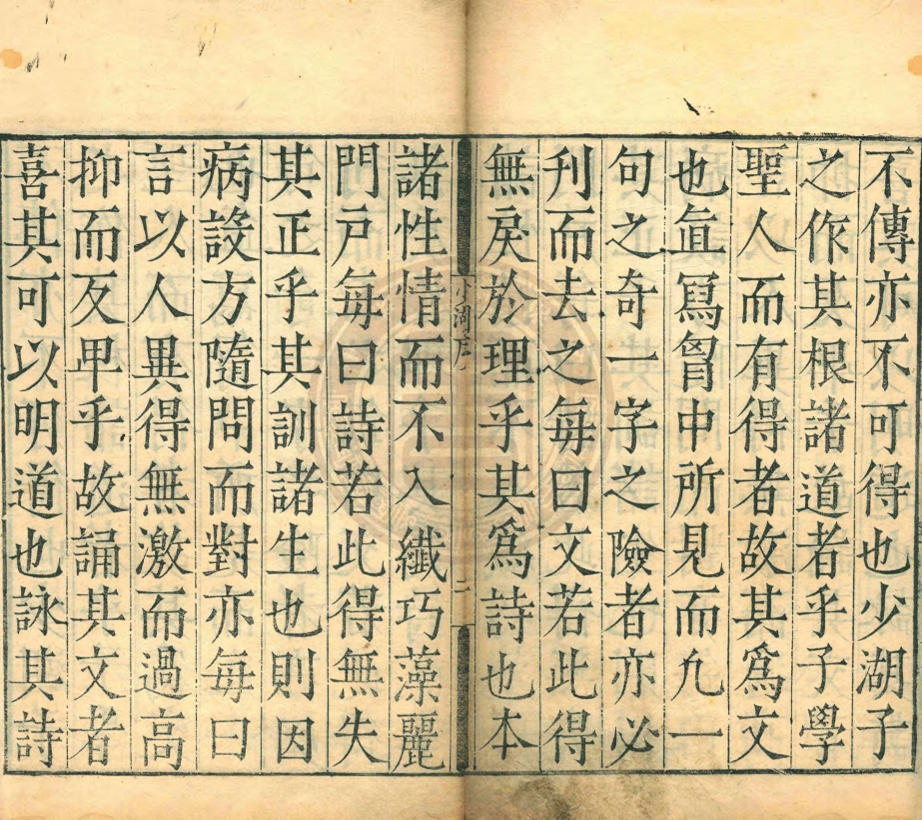 不傳亦不可得也少湖子
之作其根諸道者乎子學
聖人而有得者故其爲文
也眞冩胷中所見而凣一
句之奇一字之險者亦必
刋而去之每曰文若此得
無戾於理乎其爲詩也本
少湖序
二
諸性情而不入纖巧藻麗
門戶每曰詩若此得無失
其正乎其訓諸生也則因
病設方隨問而對亦每曰
言以人異得無激而過高
抑而反甲乎故誦其文者
喜其可以明道也詠其詩